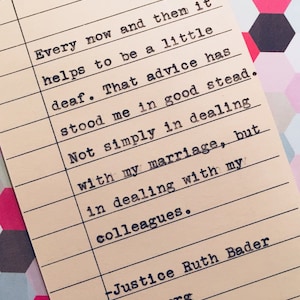 Every now and then it
helps to be a little
deaf. That advice has
stood me in good stead.
Not simply in dealing
with my marriage, but
in dealing with my
colleagues.
-Justice Ruth Bader